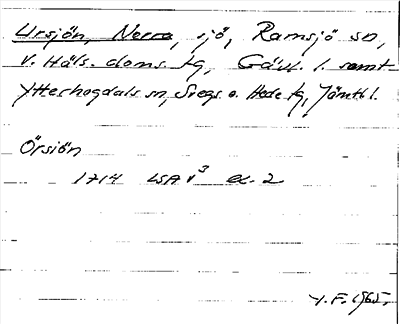 Ursjön, Norra, sjö, Ramsjö sn,
V. Häls. doms. tg, Gävl. l. samt
Ytterhogdals sn, Svegs o. Hede tg, Jämtl l.
Örsiön
1714 LSA V³ ek. 2
Y. F. 1965.